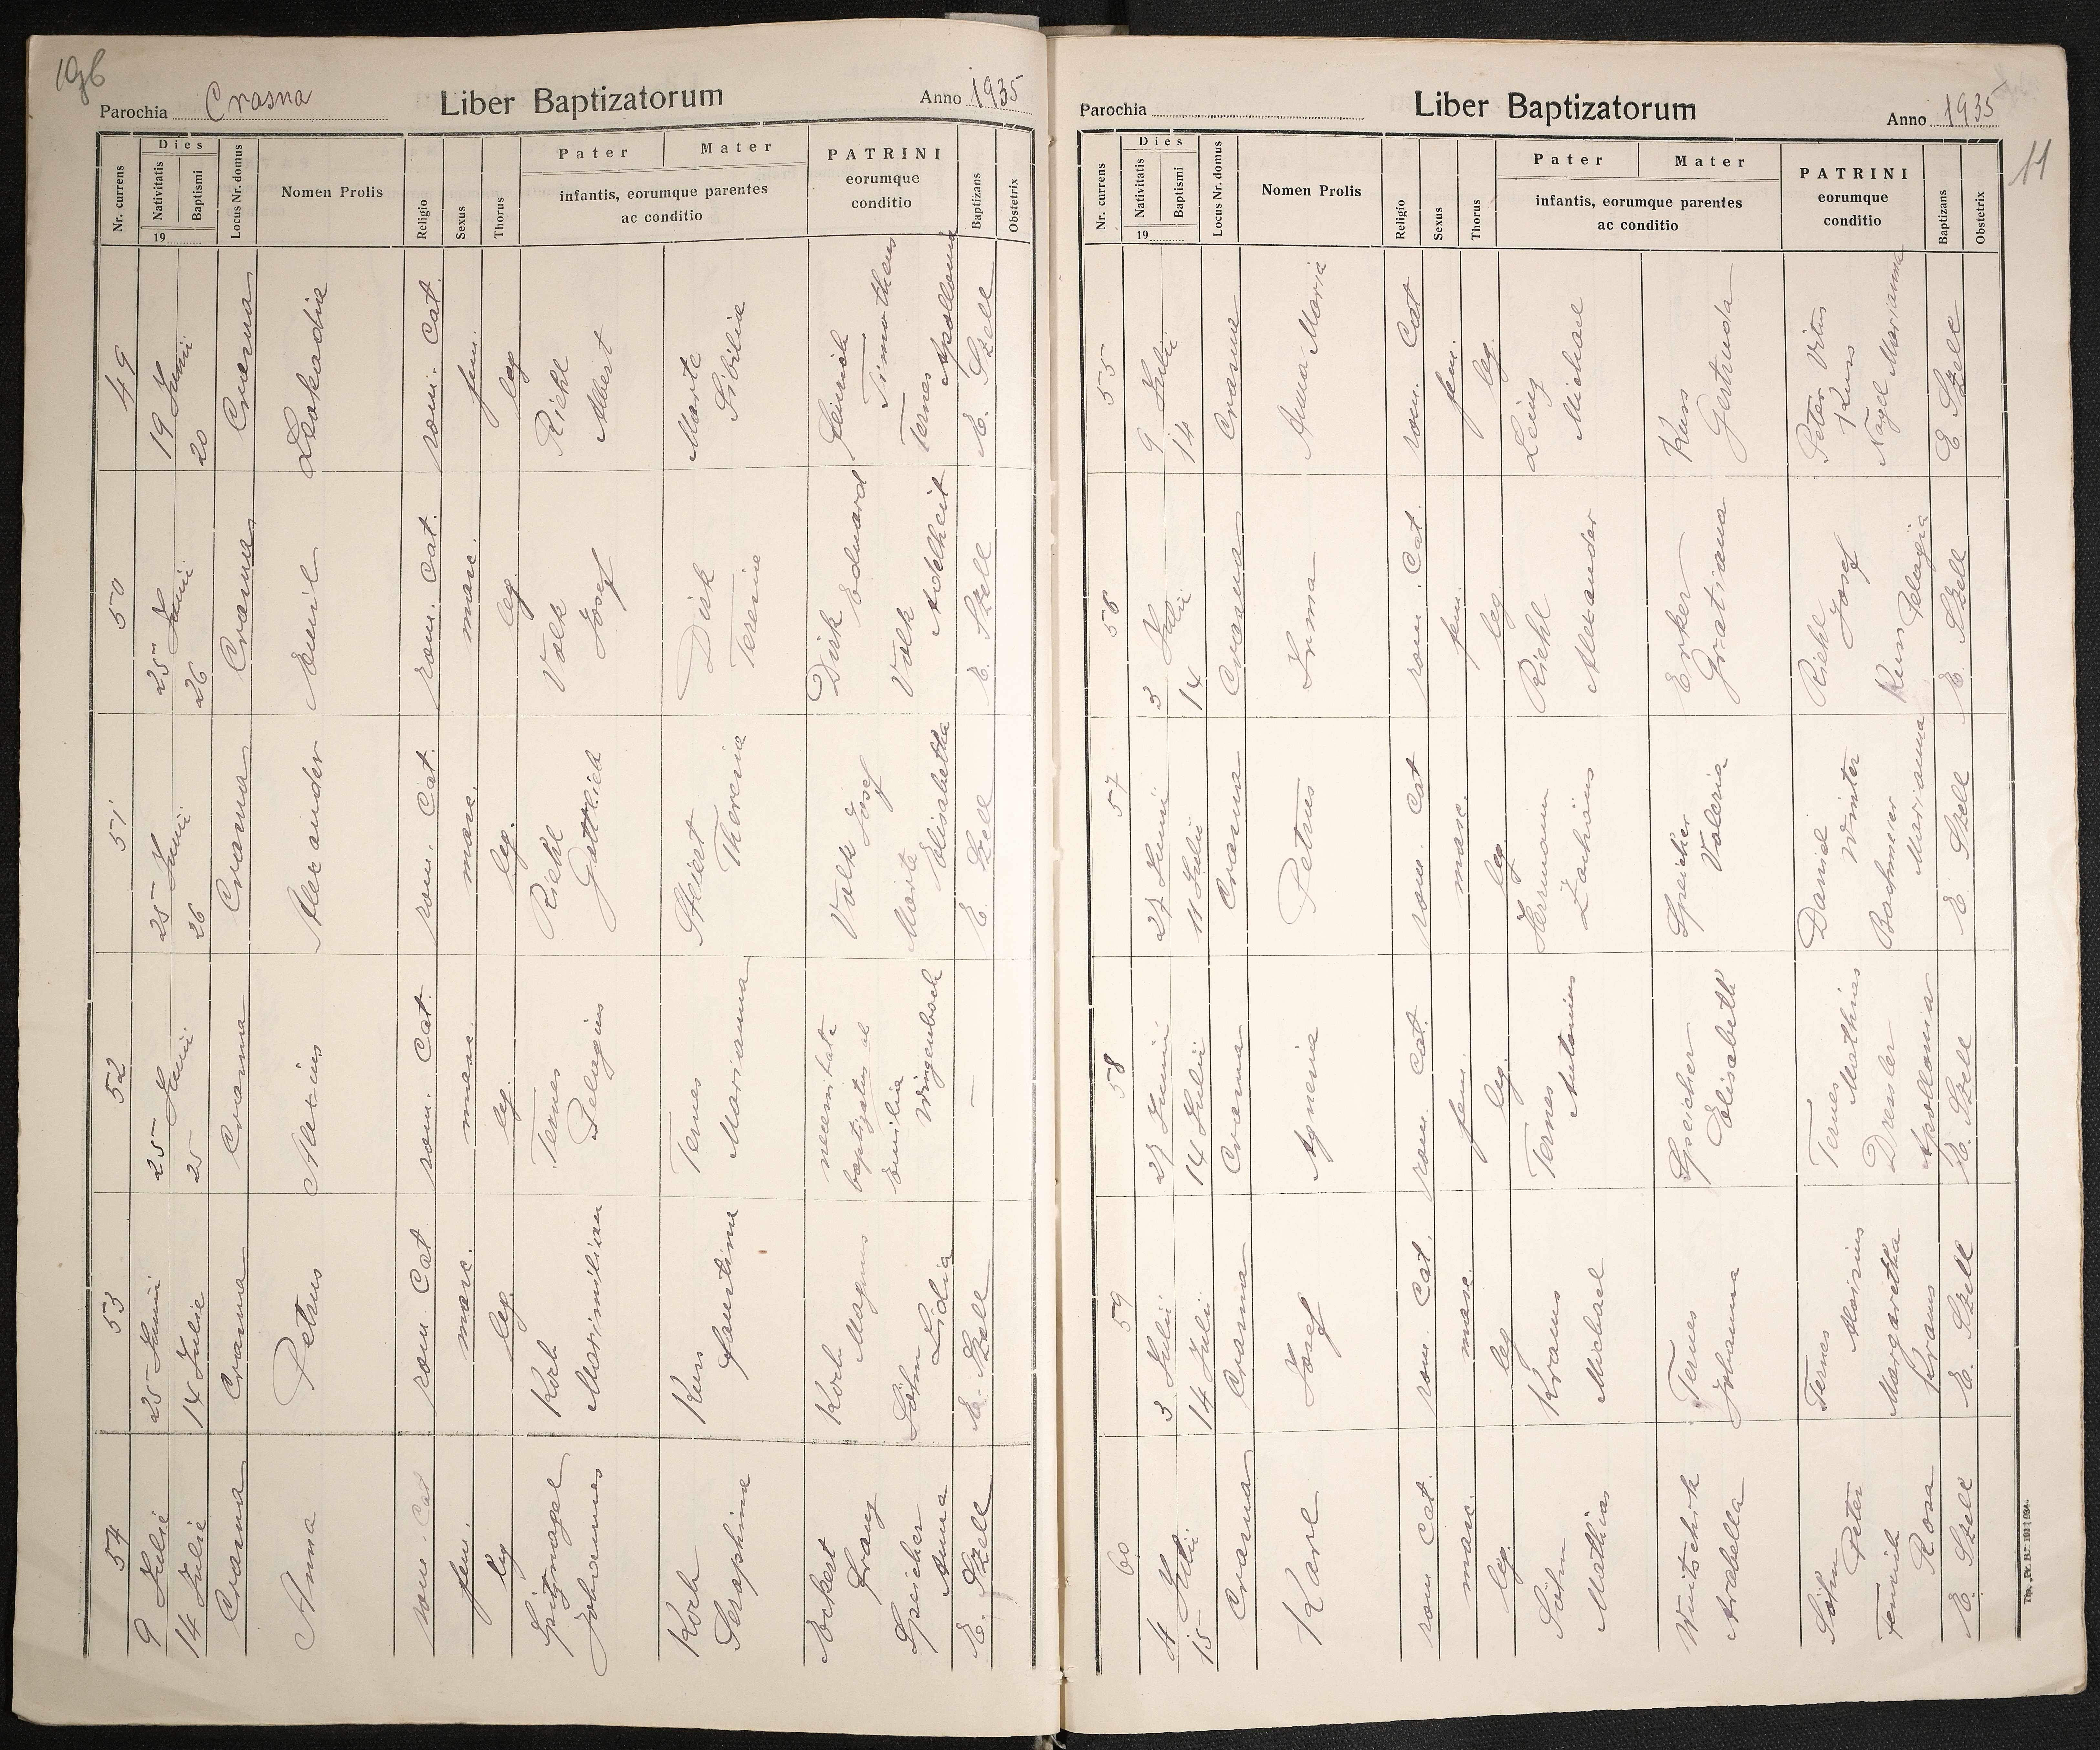 196
Parochia Crasna Liber Baptizatorum Anno 1935
Nr. currens
Dies
Nativitatis
Baptismi
19
Locus Nr. domus
Nomen Prolis
Religio
Sexus
Thorus
Pater Mater
infantis, eorumque parentes
ac conditio
PATRINI
eorumque
conditio
Baptizans
Obstetrix
49
19 Junii
20
Crasna
Leokadia
rom. Cat.
fem.
leg
Riehl
Albert
Marte
Sibilia
Heinrich
Timotheus
Ternes
Apollonia
E. Szell
50
25 Junii
26
Crasna
Emil
rom. Cat.
masc.
leg
Volk
Josef
Dirk
Teresia
Dirk
Eduard
Volk
Adelheit
E. Szell
51
25 Junii
26
Crasna
Alexander
rom. Cat.
masc.
leg.
Riehl
Steiert
Theresia
Volk Josef
Marte
Elisabetha
E. Szell
52
25 Junii
25
Crasna
Alexius
rom. Cat.
masc.
leg.
Ternes
Pelagius
Ternes
Marianna
necessitate
baptizatus a
Emilia
Wingenbach
—
53
25 Junii
14 Julie
Crasna
Petrus
rom. Cat
masc.
leg.
Koch
Maximilian
Kuss
Faustina
Koch
Magnus
Söhn
Lidia
E. Szell
54
9 Julie
14 Julie
Crasna
Anna
rom. Cat
fem.
leg
Spitznagel
Johannes
Koch
Seraphina
Eckert
Franz
Speicher
Anna
E. Szell
Parochia Liber Baptizatorum Anno 1935
11
Nr. currens
Dies
Nativitatis
Baptismi
19
Locus Nr. domus
Nomen Prolis
Religio
Sexus
Thorus
Pater Mater
infantis, eorumque parentes
ac conditio
PATRINI
eorumque
conditio
Baptizans
Obstetrix
55
9 Julii
14
Crasna
Anna Maria
rom. Cat
fem.
leg.
Leinz
Michael
Kuss
Gertruda
Peter Vitus
Kuss
Nagel Marianna
E. Szell
56
3 Julii
14
Crasna
Irma
rom. Cat.
fem.
leg.
Riehl
Alexander
Erker
Gratiana
Riehl
Josef
Kuss
Pelagia
E. Szell
57
27 Junii
11 Julii
Crasna
Petrus
rom. Cat
masc.
leg
Herrmann
Zachäus
Speicher
Valeria
Daniel
Winter
Bachmeier
Marianna
E. Szell
58
27 Junii
14 Julii
Crasna
Agnesia
rom. Cat.
fem.
leg.
Ternes
Antonius
Speicher
Elisabeth
Ternes
Matthias
Dressler
Apollonia
E. Szell
59
3 Julii
14 Julii
Crasna
Josef
rom. Cat.
masc.
leg
Kraus
Michael
Ternes
Johanna
Ternes
Aloisius
Margaretha
Kraus
E. Szell
60
4 Julii
15
Crasna
Karl
rom Cat.
masc.
leg.
Söhn
Mathias
Wuitschik
Arabella
Söhn
Peter
Fenrich
Rosa
E. Szell